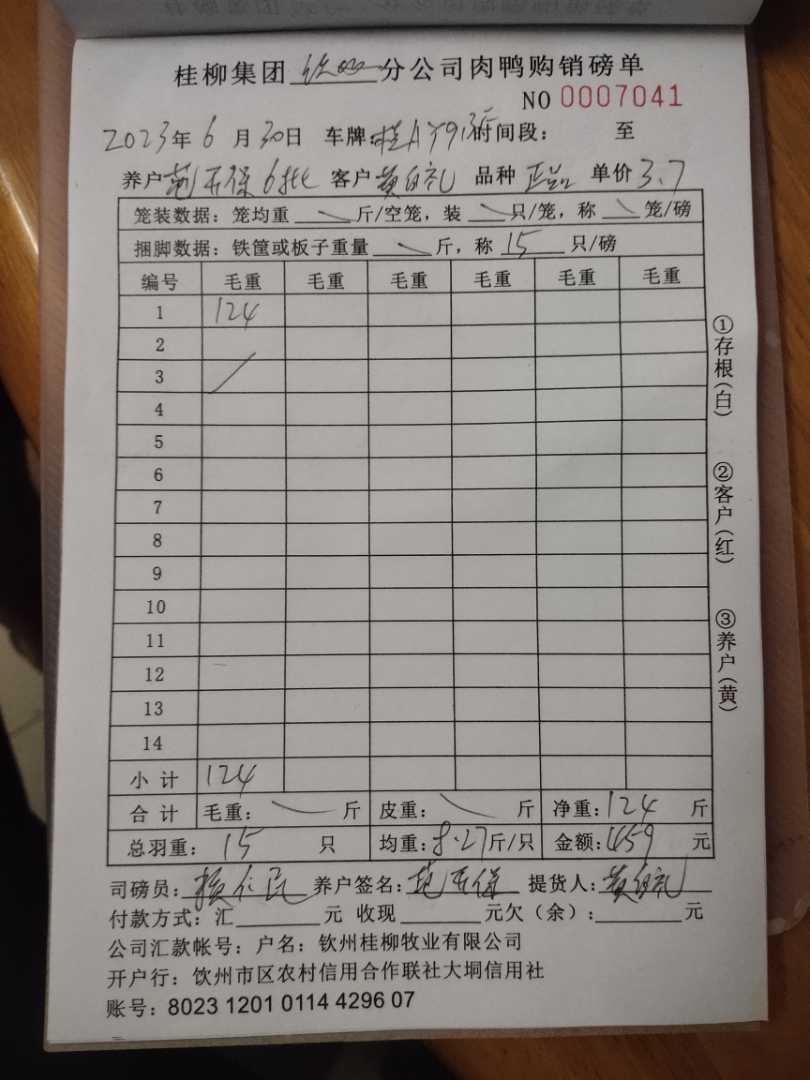 桂柳集团 钦州 分公司肉鸭购销磅单
NO 0007041
2023年 6 月 30日 车牌:桂A 时间段: 至
养户 6批 客户 黄 品种 单价 3.7
笼装数据: 笼均重 斤/空笼, 装 只/笼, 称 笼/磅
捆脚数据: 铁筐或板子重量 斤, 称 15 只/磅
编号 毛重 毛重 毛重 毛重 毛重 毛重
1 124
2
3
4
5
6
7
8
9
10
11
12
13
14
小 计 124
合 计 毛重: 斤 皮重: 斤 净重: 124 斤
总羽重: 15 只 均重: 8.27斤/只 金额: 459 元
①存根(白)
②客户(红)
③养户(黄)
司磅员: 养户签名: 提货人: 黄
付款方式: 汇 元 收现 元欠(余): 元
公司汇款帐号: 户名: 钦州桂柳牧业有限公司
开户行: 饮州市区农村信用合作联社大垌信用社
账号: 8023 1201 0114 4296 07